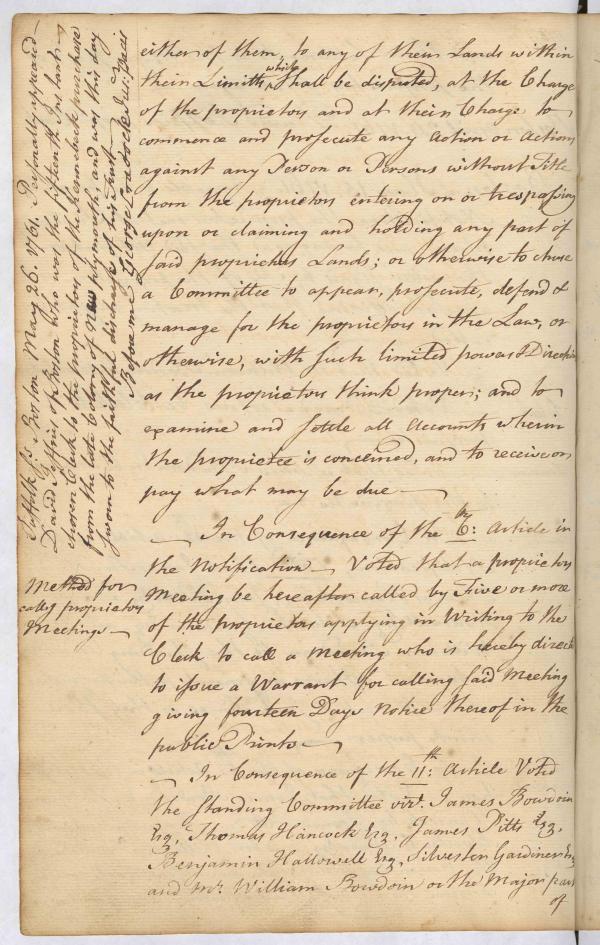 Suffolk ss: Boston May 26. 1761. Personally appeared
David Jeffries of Boston who was the fifteenth Inst.
chosen Clerk to the proprietors of the Kennebeck purchase
from the late Colony of New plymouth, and was this day
sworn to the faithful discharge of his Trust
Before me George Cradocke Jus: Pacis
either of them, to any of their Lands within
their Limitts while shall be disputed, at the Charge
of the proprietors and at their Charge to
commence and prosecute any action or actions
against any Person or Persons without Title
from the proprietors entering on or trespassing
upon or claiming and holding any part of
said proprietors Lands; or otherwise to chuse
a Committee to appear, prosecute, defend &
manage for the proprietors in the Law, or
otherwise, with such limited powers & Direction
as the proprietors think proper; and to
examine and settle all accounts wherein
the proprietee is concerned, and to receive or
pay what may be due —
— In Consequence of the 6th: article in
the Notification — Voted that a proprietors
Meeting be hereafter called by Five or more
of the proprietors applying in Writing to the
Clerk to call a Meeting who is hereby direct
to issue a Warrant for calling said Meeting
giving fourteen Days Notice thereof in the
public Prints —
Method for
callg proprietors
Meetings —
— In Consequence of the 11th: article Voted
the Standing Committee vizt. James Bowdoin
Esq, Thomas Hancock Esq, James Pitts Esq,
Benjamin Hallowell Esq, Silvester Gardiner Esq
and Mr. William Bowdoin or the Major part
of